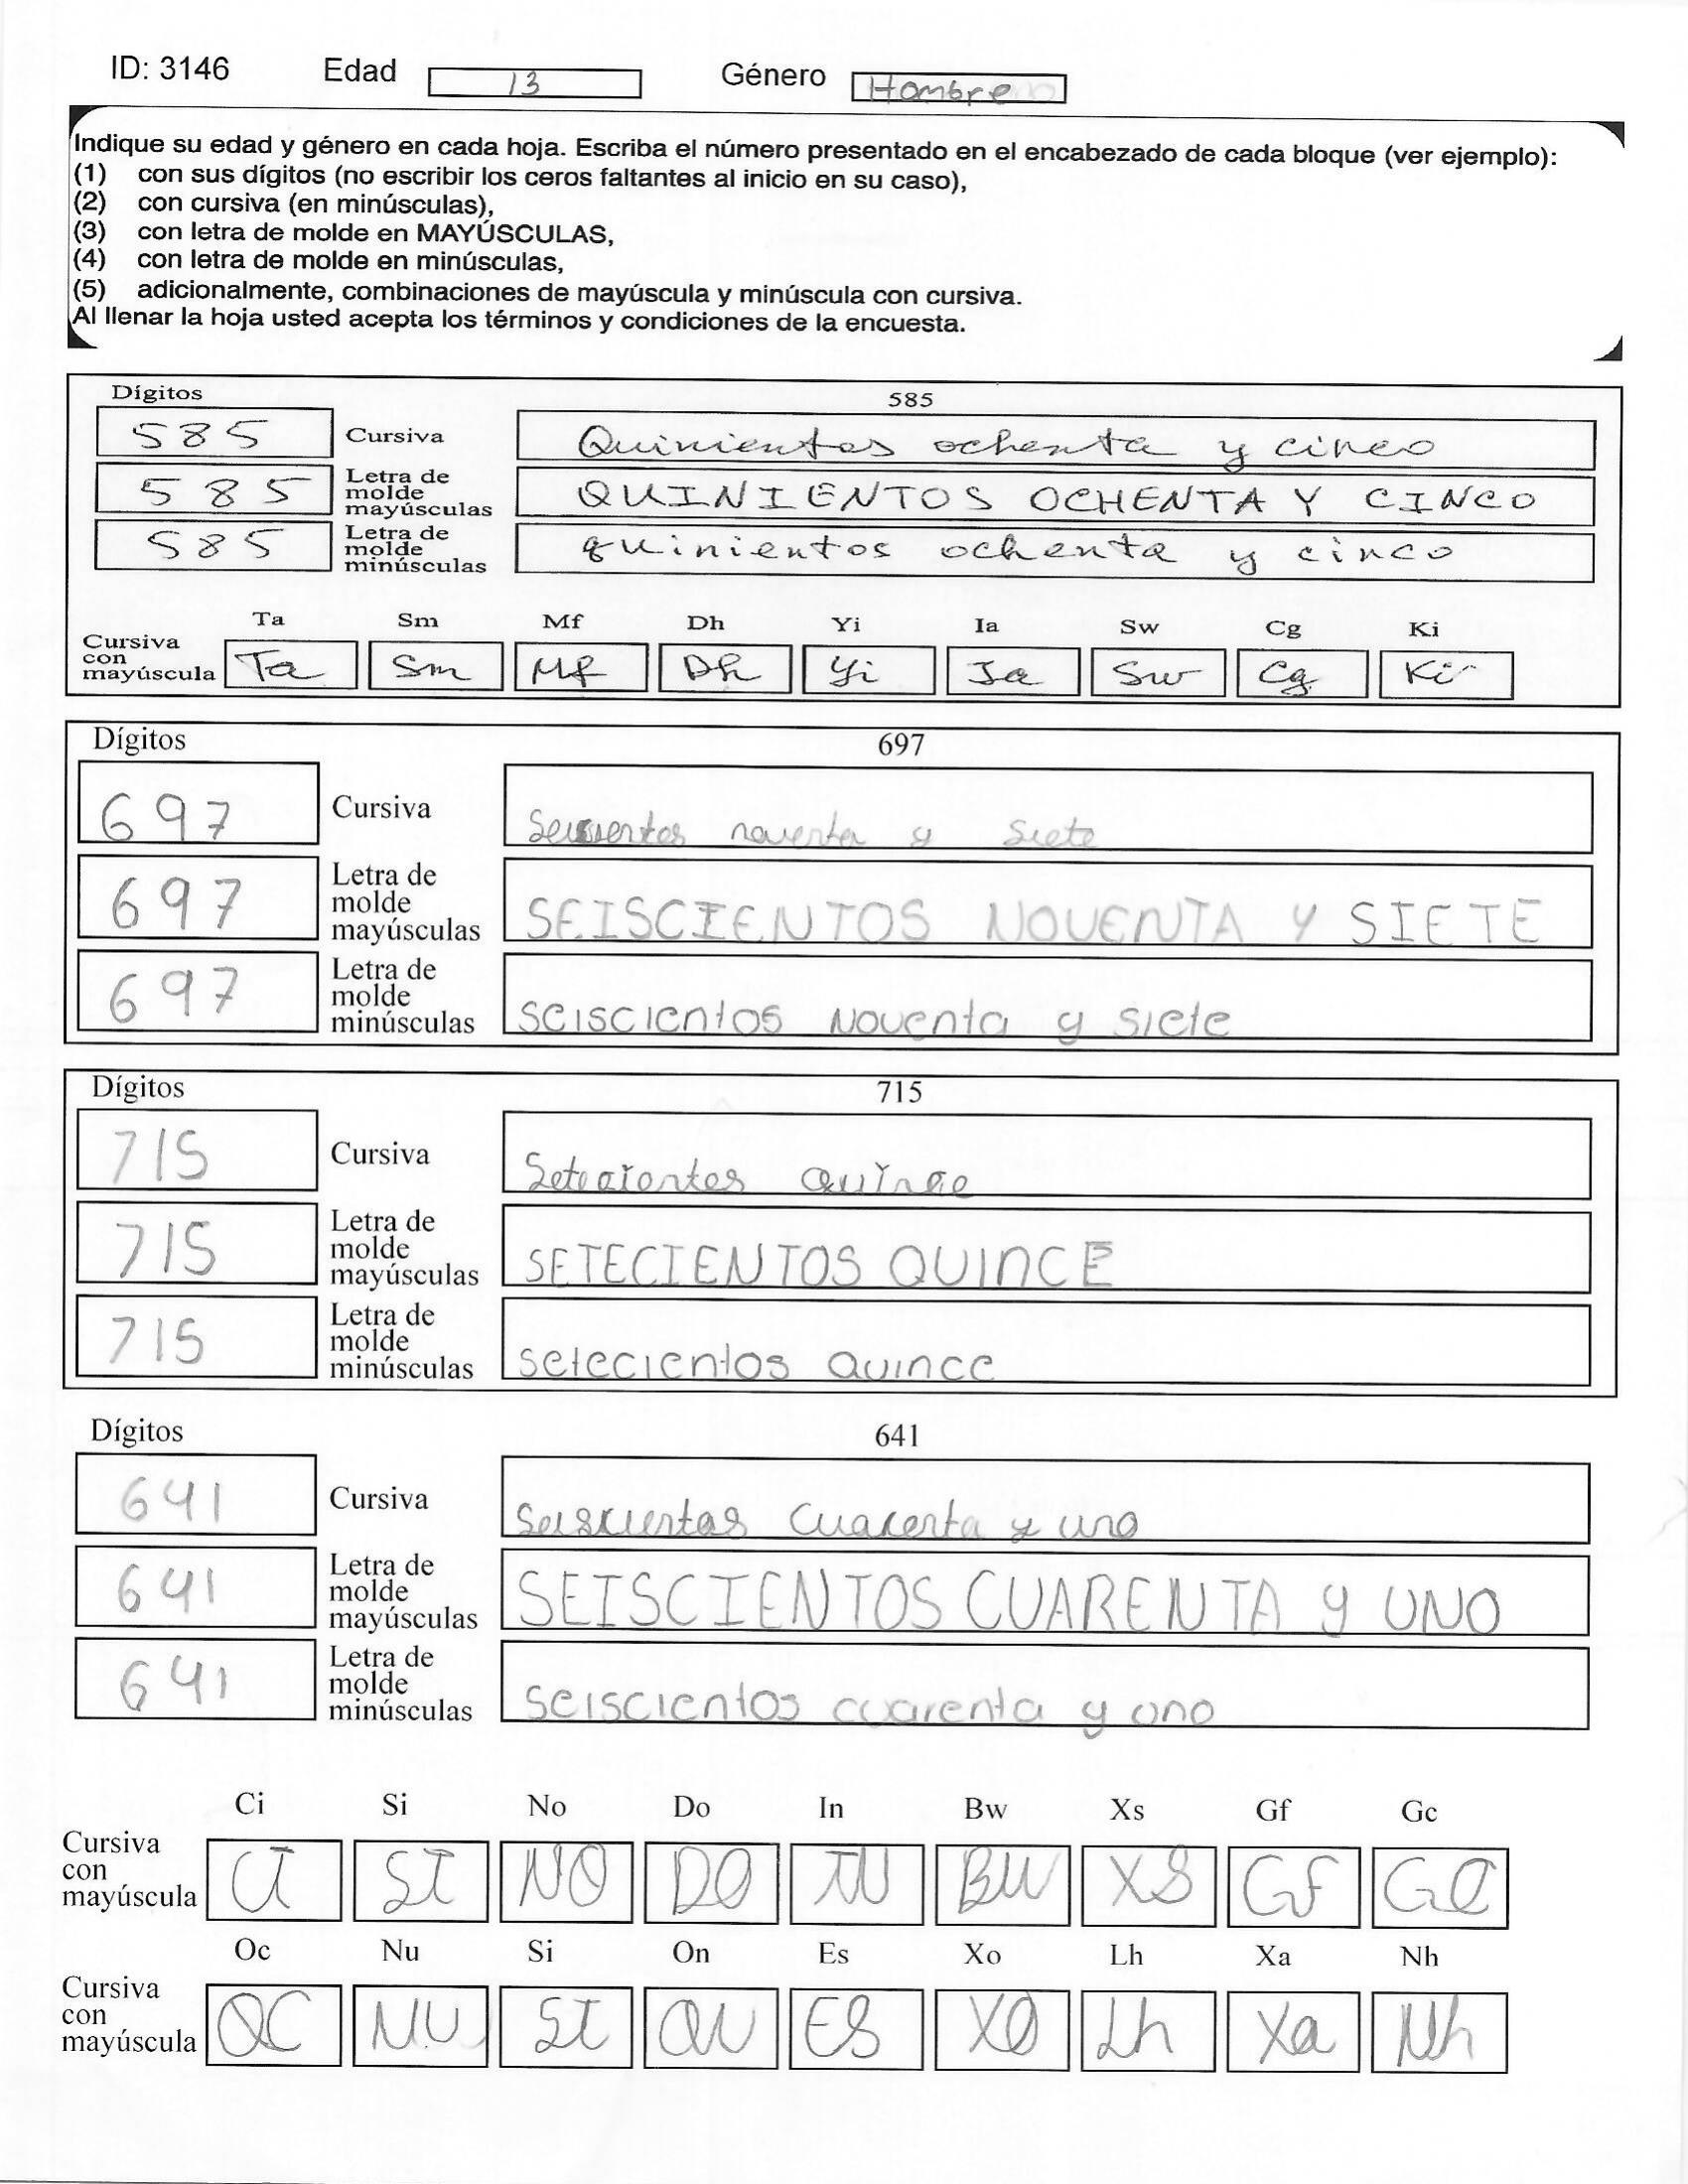 ID: 3146 Edad 13 Género Hombre
Indique su edad y género en cada hoja. Escriba el número presentado en el encabezado de cada bloque (ver ejemplo):
(1) con sus dígitos (no escribir los ceros faltantes al inicio en su caso),
(2) con cursiva (en minúsculas),
(3) con letra de molde en MAYÚSCULAS,
(4) con letra de molde en minúsculas,
(5) adicionalmente, combinaciones de mayúscula y minúscula con cursiva.
Al llenar la hoja usted acepta los términos y condiciones de la encuesta.
Dígitos 585
585 Cursiva Quinientos ochenta y cinco
585 Letra de molde mayúsculas QUINIENTOS OCHENTA Y CINCO
585 Letra de molde minúsculas quinientos ochenta y cinco
Ta Sm Mf Dh Yi Ia Sw Cg Ki
Cursiva con mayúscula Ta Sm Mf Dh Yi Ia Sw Cg Ki
Dígitos 697
697 Cursiva Seiscientos noventa y siete
697 Letra de molde mayúsculas SEISCIENTOS NOVENTA Y SIETE
697 Letra de molde minúsculas seiscientos Noventa y siete
Dígitos 715
715 Cursiva Setecientos Quince
715 Letra de molde mayúsculas SETECIENTOS QUINCE
715 Letra de molde minúsculas setecientos Quince
Dígitos 641
641 Cursiva Seiscientos Cuarenta y uno
641 Letra de molde mayúsculas SEISCIENTOS CUARENTA y UNO
641 Letra de molde minúsculas seiscientos cuarenta y uno
Ci Si No Do In Bw Xs Gf Gc
Cursiva con mayúscula CI SI NO DO IN BW XS Gf GC
Oc Nu Si On Es Xo Lh Xa Nh
Cursiva con mayúscula OC NU SI ON ES XO Lh Xa Nh